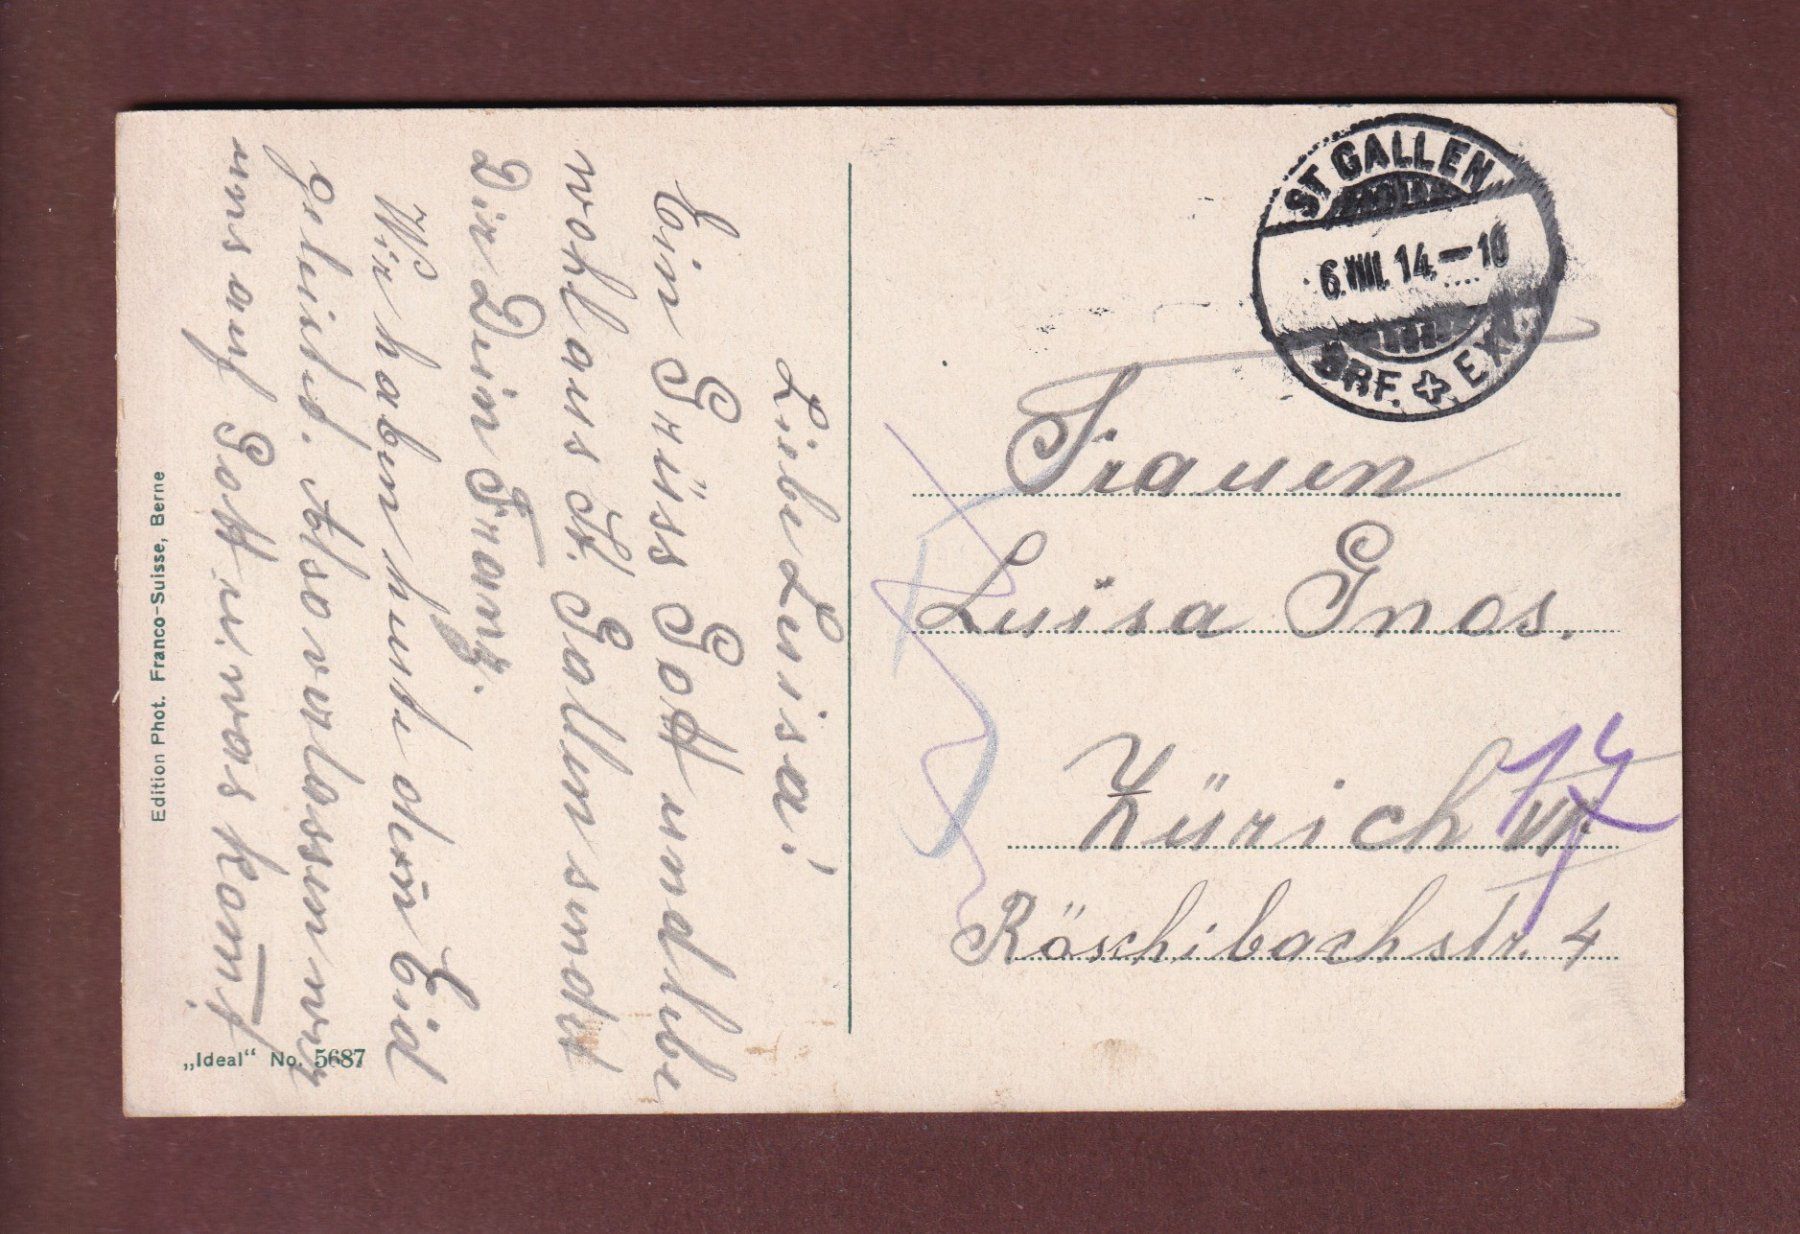 Liebe Luisa!
Ein Grüss Gott und lebe
wohl aus St. Gallen sendet
Dir Dein Franz.
Wir haben heute den Eid
geleistet. Also verlassen wir
uns auf Gott u. was kom̄t
Edition Phot. Franco-Suisse, Berne
„Ideal“ No. 5687
ST GALLEN
6.VIII.14.–10
BRF. EXP.
Frauen
Luisa Gnos.
Zürich VI.
17
Röschibachstr. 4